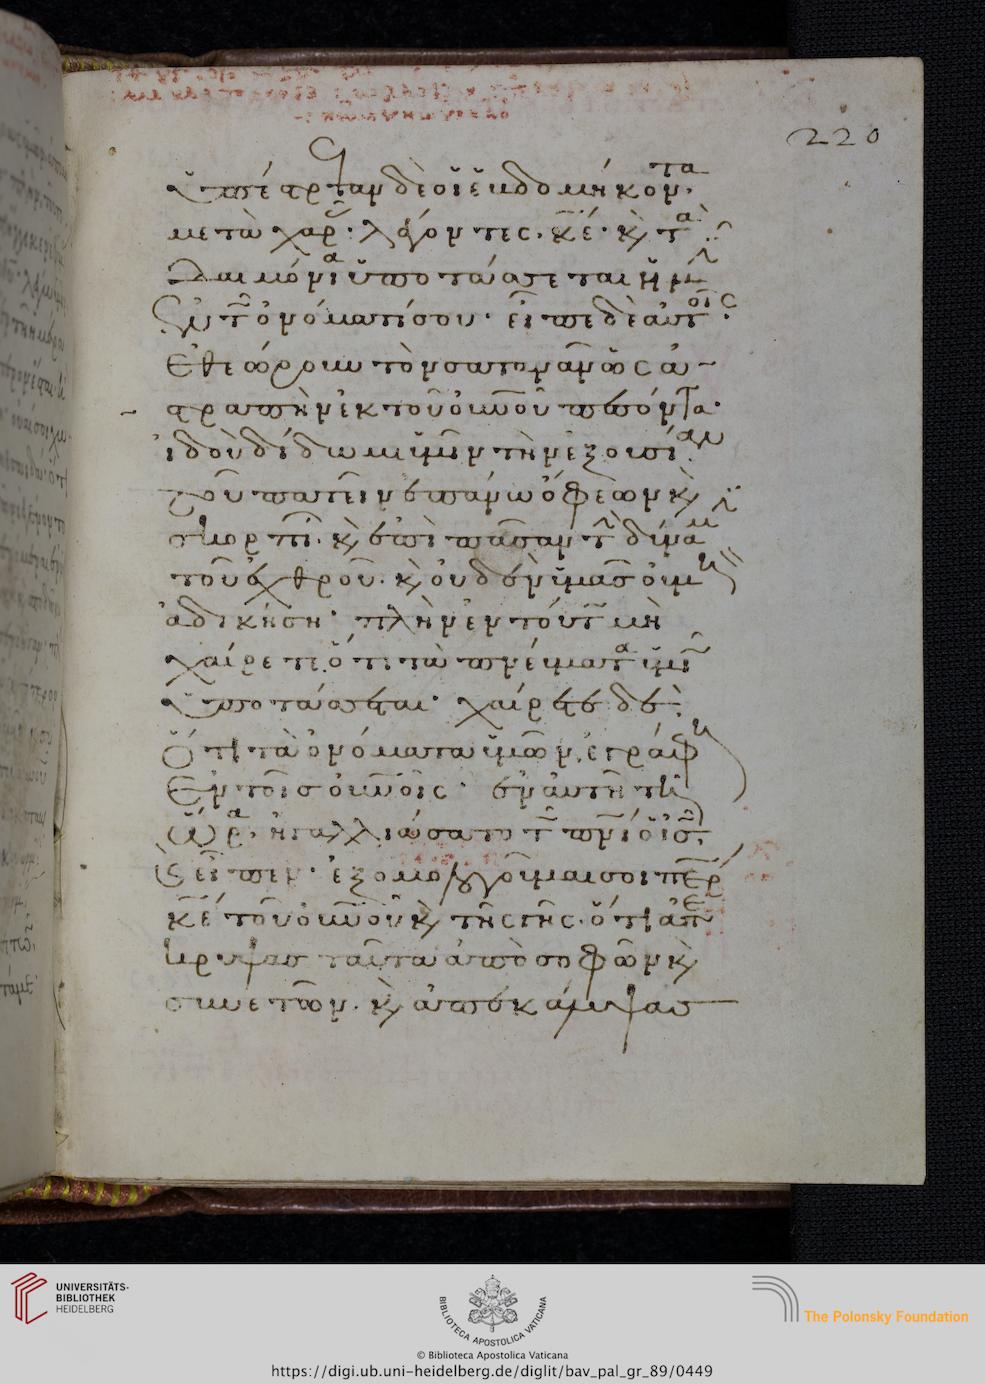 220
Ὑπέστρεψαν δὲ οἱ ἑβδομήκοντα
μετὰ χαρ· λέγοντες· κε· κὶ τὰ
δαιμόνια ὑποτάσσεται ἡμῖν
ἐν τῶ ὀνόματί σου· εἶπε δὲ αὐτοῖς·
Ἐθεώρουν τὸν σατανᾶν ὡς ἀ
στραπὴν ἐκ τοῦ οὐνοῦ πεσόντα·
ἰδοὺ δίδωμι ὑμῖν τὴν ἐξουσίαν
τοῦ πατεῖν ἐπάνω ὄφεων κὶ
σκορπί· κὶ ἐπὶ πᾶσαν τ δύναμιν
τοῦ ἐχθροῦ· κὶ οὐδὲν ὑμᾶς οὐ μὴ
ἀδικήση· πλὴν ἐν τούτω μὴ
χαίρετε ὅτι τὰ πνεύματα ὑμῖν
ὑποτάσσεται· χαίρετε δὲ
ὅτι τὰ ὀνόματα ὑμῶν ἐγράφη
ἐν τοῖς οὐνοῖς· ἐν αὐτῆ τῆ
ὥρα ἠγαλλιάσατο τῶ πνι ὁ ις
κ εἶπεν· ἐξομολογοῦμαί σοι περ
κε τοῦ οὐνοῦ κὶ τῆς γῆς· ὅτι ἀπέ
κρυψας ταῦτα ἀπὸ σοφῶν κὶ
συνετῶν· κὶ ἀπεκάλυψας
UNIVERSITÄTS-
BIBLIOTHEK
HEIDELBERG
BIBLIOTECA APOSTOLICA VATICANA
The Polonsky Foundation
© Biblioteca Apostolica Vaticana
https://digi.ub.uni-heidelberg.de/diglit/bav_pal_gr_89/0449